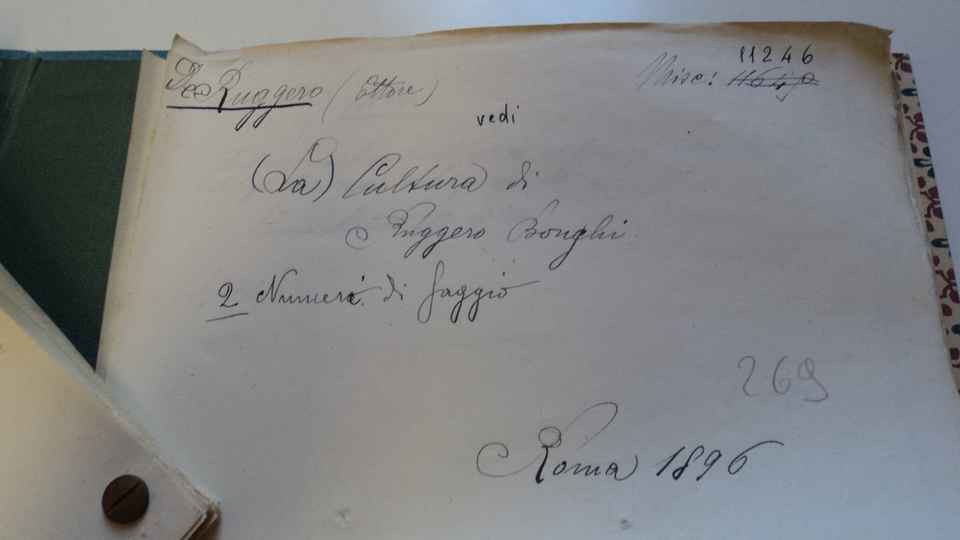 De Ruggero (Ettore)
Misc: 11246
vedi
(La) Cultura di
Ruggero Bonghi
2 Numeri di saggio
269
Roma 1896